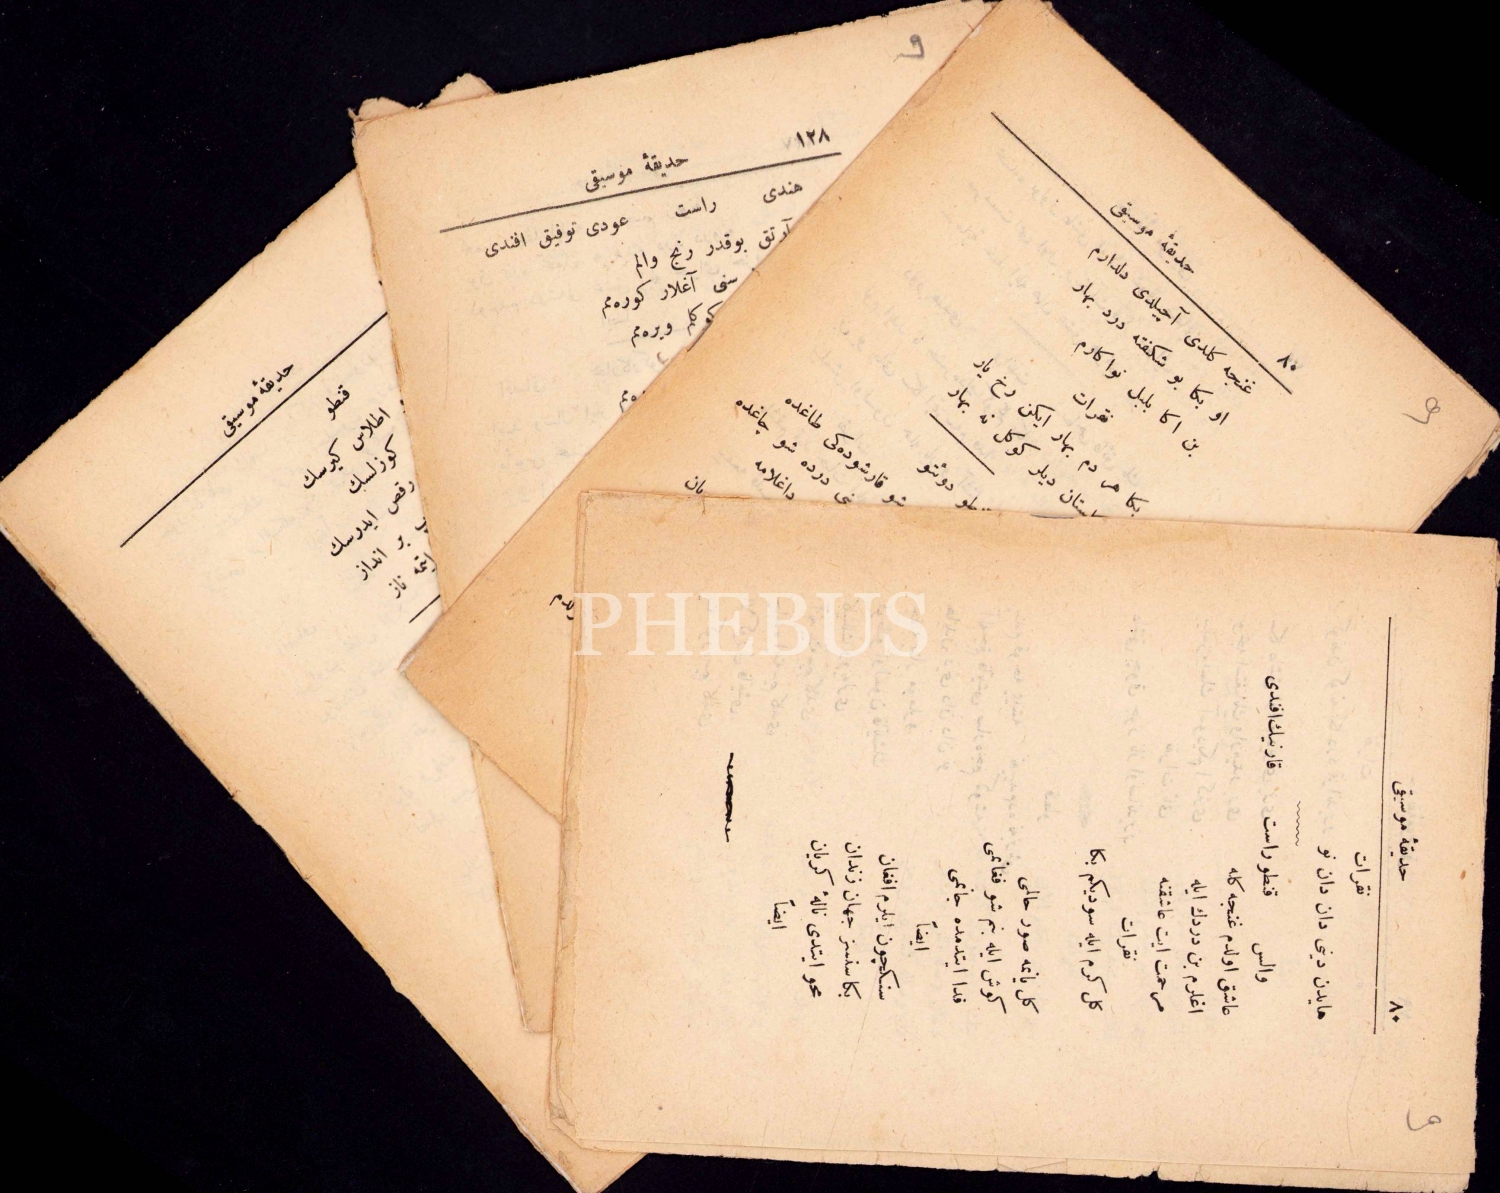 حديقۀ موسيقى
قنطو
اطلاس كيرسك
كوزلسك
رقص ايدرسك
بر انداز
ايتمه ناز
١٢٨
حديقۀ موسيقى
هندى راست عودى توفيق افندى
آرتق بوقدر رنج والم
سنى آغلار كورەمم
ويرەمم
حديقۀ موسيقى
٨٠
غنجه كلدى آچيلدى دلدارم
او بكا بو شكفته درد بهار
بن اكا بلبل نواكارم
نقرات
بكا هر دم بهار ايكن رخ يار
ديلر كوكل نه بهار
قنطو دوئتو
شو قارشودەكى طاغده
درده شو چاغده
داغلامه
يان
PHEBUS
حديقۀ موسيقى
٨٠
نقرات
هايدن دينى دان دان نو
والس قنطو راست قارنيك افندى
عاشق اولدم غنجه كله
اغلرم بن دردك ايله
مرحمت ايت عاشقنه
نقرات
كل كرم ايله سوديكم بكا
كل يانمه صور حالمى
كوش ايله بنم شو فغانمى
فدا ايتدمده جانمى
ايضاً
سنكچون ايلرم افغان
بكا سنسز جهان زندان
محو ايتدى نالۀ كريان
ايضاً